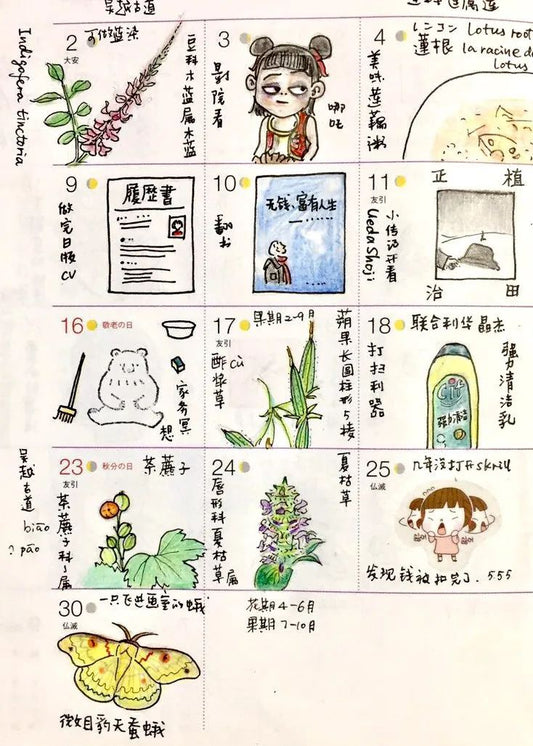 吴越古道
Indigofera tinctoria
2
大安
可做蓝染
豆科木蓝属木蓝
3
影院看
哪吒
4
レンコン Lotus root
蓮根 la racine de
lotus
美味莲藕粥
9
做完日版CV
履歴書
10
翻书
无钱、富有人生
11
友引
小传记开看
Ueda Shoji
正
植
治
田
16
敬老の日
家务冥想
17
友引
果期2-9月
酢浆草
cù
蒴果长圆柱形5棱
18
联合利华晶杰
打扫利器
强力清洁乳
Cif
23
秋分の日
友引
茶藨子
吴越古道
biāo
? pāo
茶藨子科~属
24
唇形科夏枯草属
夏枯草
25
仏滅
几年没打开skrill
发现钱被扣完了. 555
花期4-6月
果期7-10月
30
仏滅
一只飞进画室的蛾
微目豹天蚕蛾